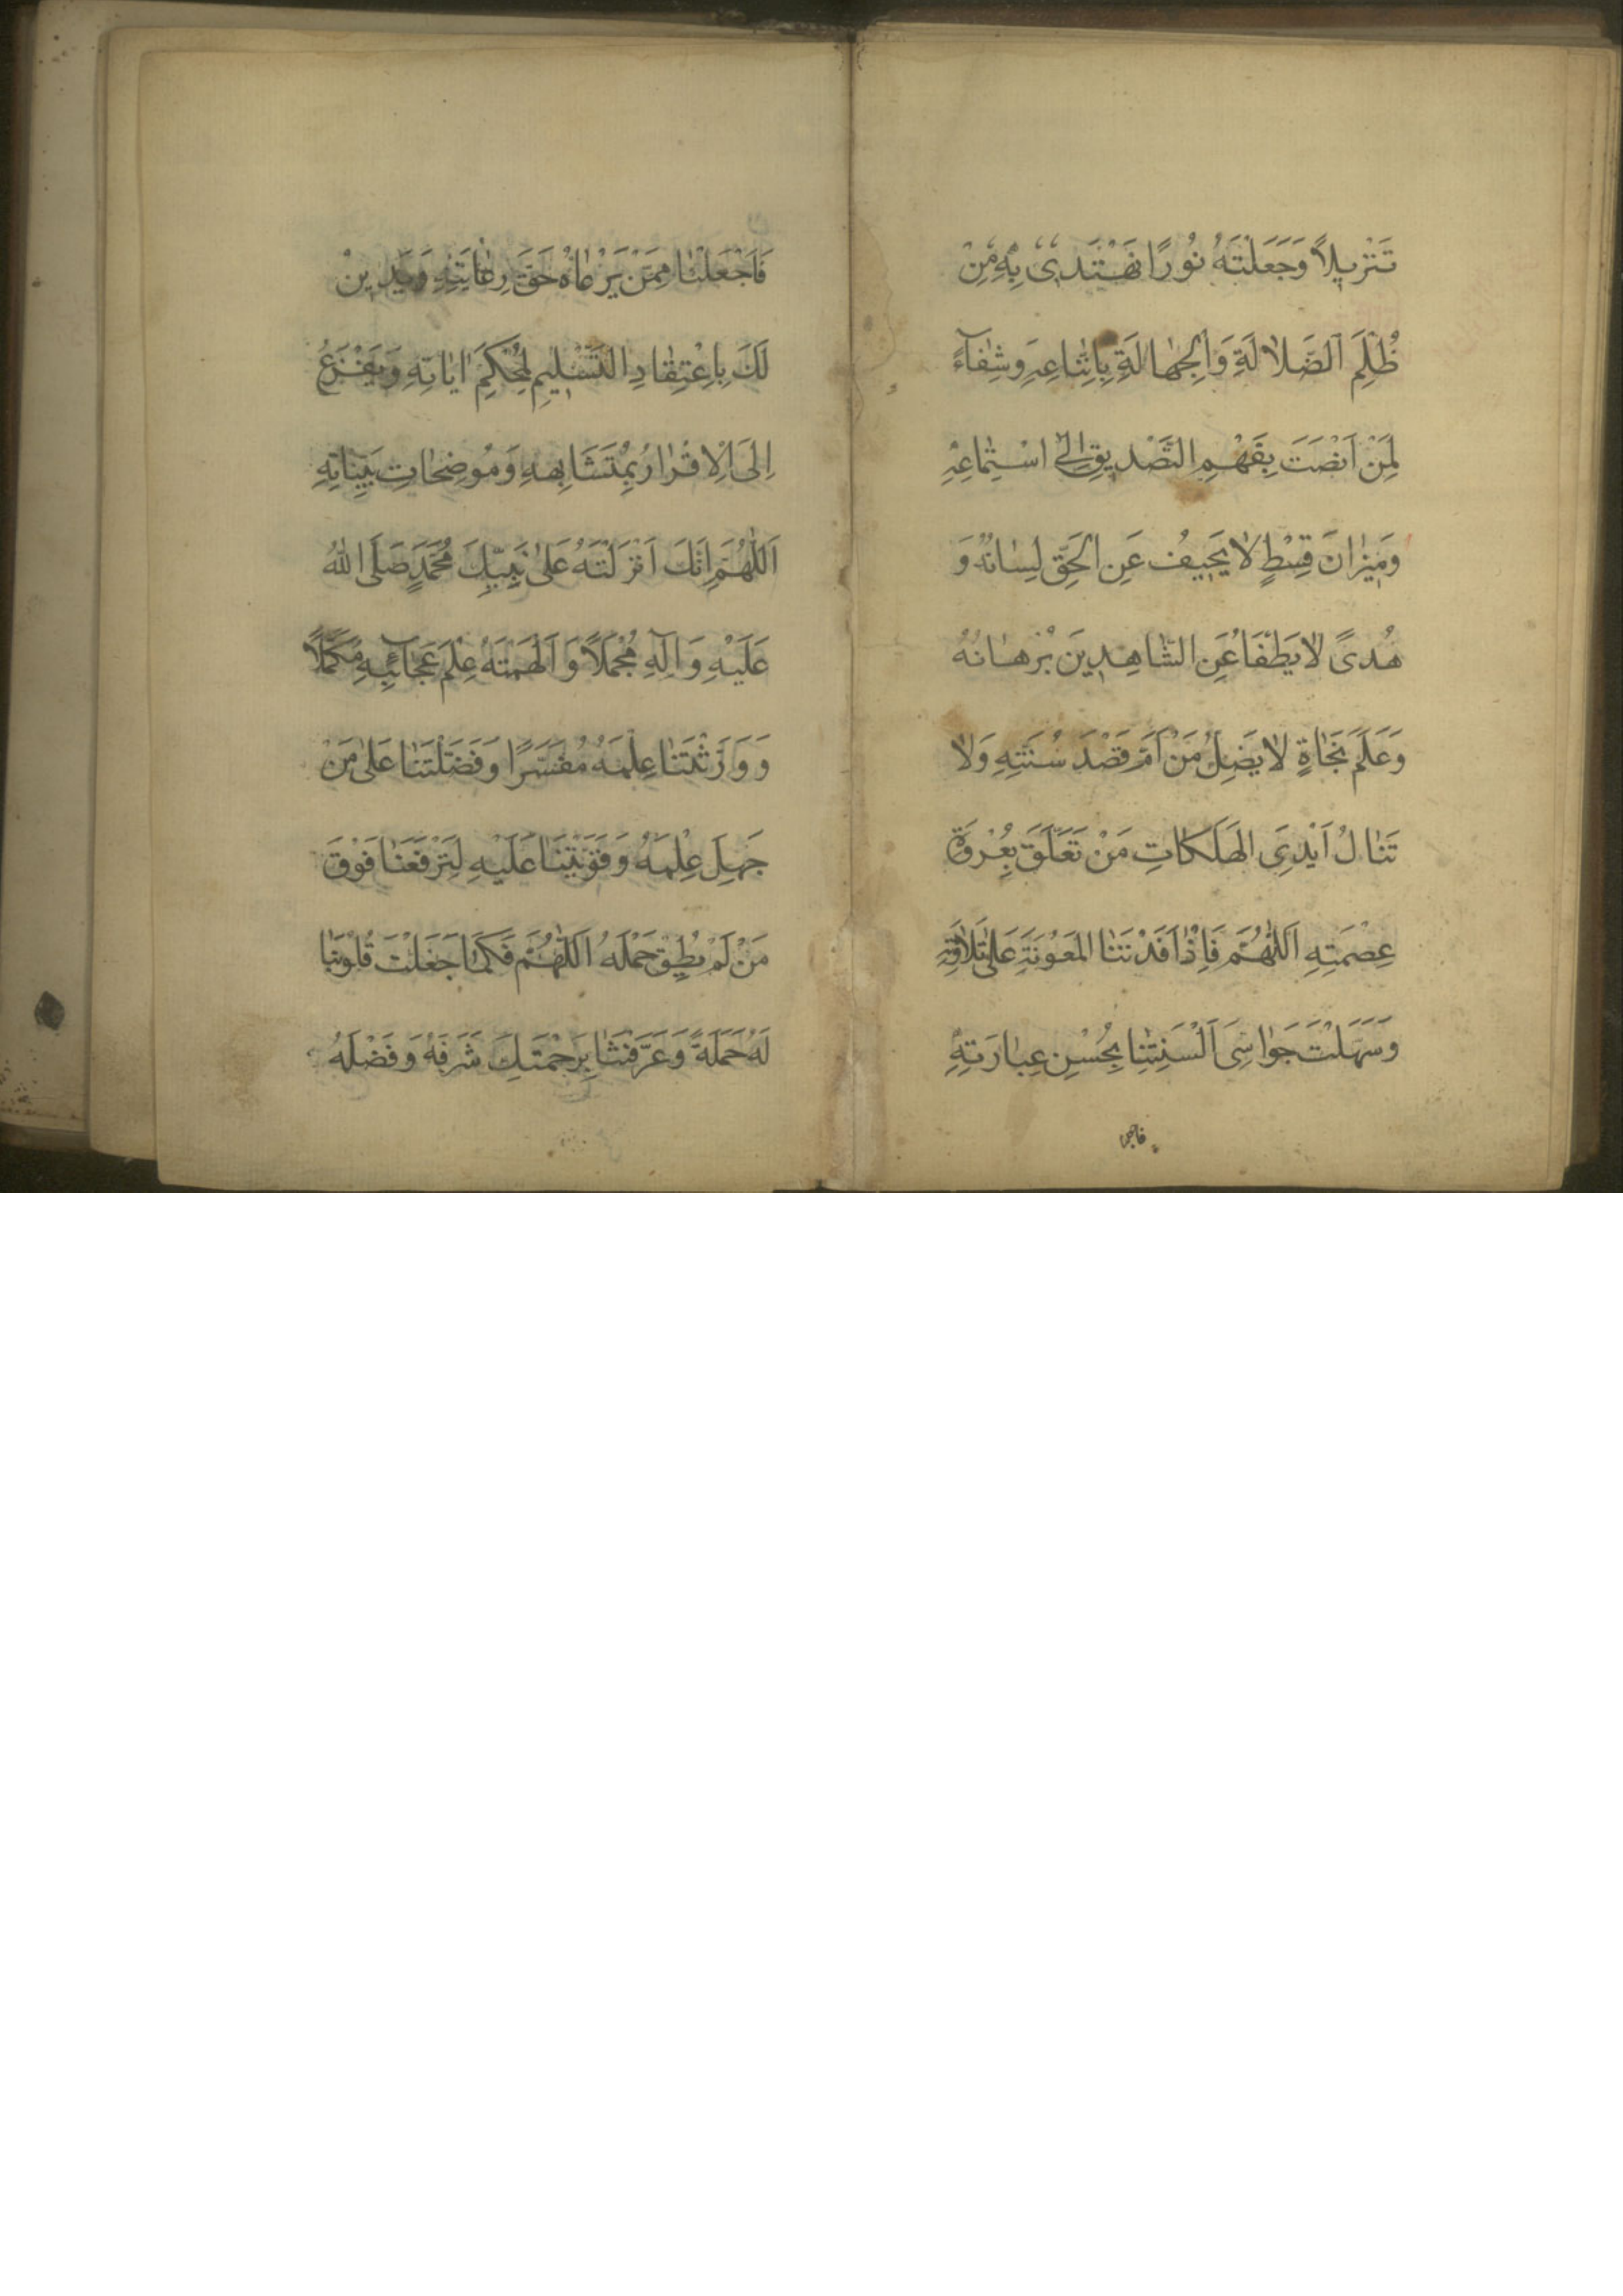 تَنْزِيلاً وَجَعَلْتَهُ نُورًا نَهْتَدِي بِهِ مِنْ
ظُلَمِ الضَّلالَةِ وَالجَهالَةِ بِاتِّبَاعِهِ وَشِفَآءً
لِمَنْ اَنْصَتَ بِفَهْمِ التَّصْدِيقِ اِلَى اسْتِمَاعِهِ
وَمِيزَانَ قِسْطٍ لا يَحِيفُ عَنِ الحَقِّ لِسَانُهُ وَ
هُدىً لا يَطْفَأُ عَنِ الشَّاهِدِينَ بُرْهَانُهُ
وَعَلَمَ نَجَاةٍ لا يَضِلُّ مَنْ اَمَّ قَصْدَ سُنَّتِهِ وَلا
تَنَالُ اَيْدِي الهَلَكَاتِ مَنْ تَعَلَّقَ بِعُرْوَةِ
عِصْمَتِهِ اَللّٰهُمَّ فَاِذْ اَفَدْتَنَا المَعُونَةَ عَلَى تِلاوَتِهِ
وَسَهَّلْتَ جَوَاسِيَ اَلْسِنَتِنَا بِحُسْنِ عِبَارَتِهِ
فاجعلنا
فَاجْعَلْنَا مِمَّنْ يَرْعَاهُ حَقَّ رِعَايَتِهِ وَيَدِينُ
لَكَ بِاعْتِقَادِ التَّسْلِيمِ لِمُحْكَمِ ايَاتِهِ وَيَفْزَعُ
اِلَى الاِقْرَارِ بِمُتَشَابِهِهِ وَمُوضِحَاتِ بَيِّنَاتِهِ
اَللّٰهُمَّ اِنَّكَ اَنْزَلْتَهُ عَلى نَبِيِّكَ مُحَمَّدٍ صَلَّى اللهُ
عَلَيْهِ وَآلِهِ مُجْمَلاً وَاَلْهَمْتَهُ عِلْمَ عَجَآئِبِهِ مُكَمَّلاً
وَوَرَّثْتَنَا عِلْمَهُ مُفَسَّرًا وَفَضَّلْتَنَا عَلى مَنْ
جَهِلَ عِلْمَهُ وَقَوَّيْتَنَا عَلَيْهِ لِتَرْفَعَنَا فَوْقَ
مَنْ لَمْ يُطِقْ حَمْلَهُ اَللّٰهُمَّ فَكَمَا جَعَلْتَ قُلُوبَنَا
لَهُ حَمَلَةً وَعَرَّفْتَنَا بِرَحْمَتِكَ شَرَفَهُ وَفَضْلَهُ